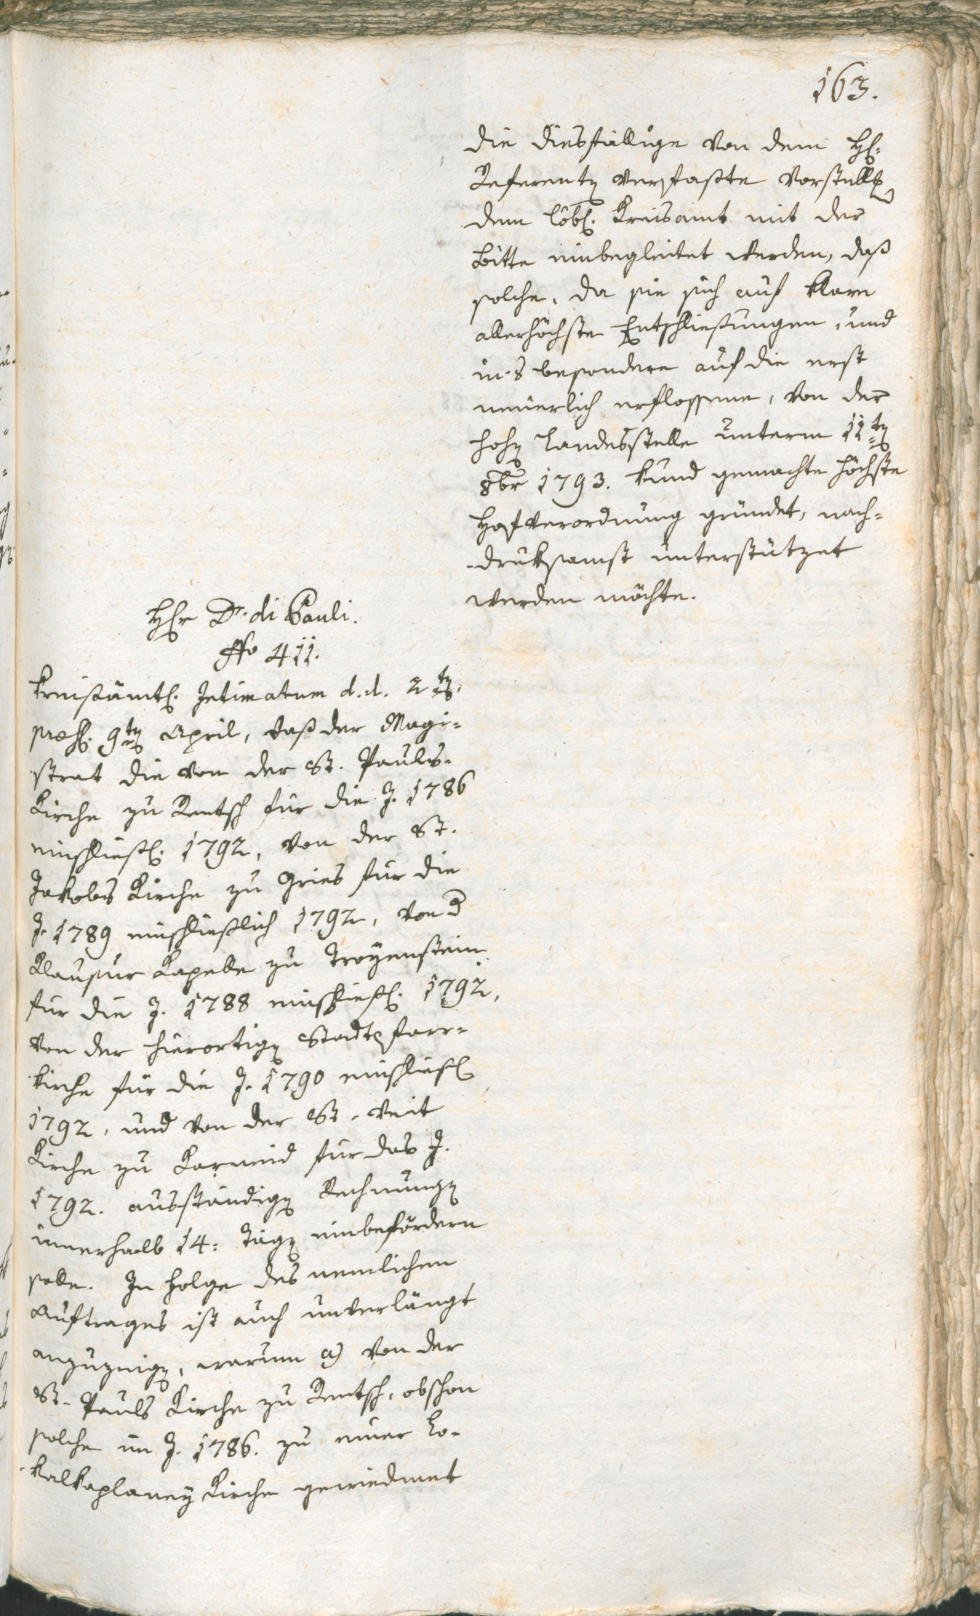 163.
die diesfällige von dem H.
Referenten verfaßte Vorstellg
dem löbl. Kreisamt mit der
Bitte einbegleitet werden, daß
solche, da sie sich auf klare
allerhöchste Entschließungen, und
in's besondere auf die erst
neuerlich erflossene, von der
hohen Landesstelle unterm 11ten
8br 1793. kund gemachte höchste
Hofverordnung gründet, nach=
druksamst unterstützet
werden möchte.
Hr Dr. di Pauli.
No 411.
Kreisämtl. Intimatum d.d. 2ten,
præs. 9ten April, daß der Magi=
strat die von der St. Pauls-
Kirche zu Rentsch für die J. 1786
einschließl. 1792, von der St.
Jakobs Kirche zu Gries für die
J. 1789 einschließlich 1792, von d
Klausur Kapelle zu Troyenstein
für die J. 1788 einschließl. 1792,
von der hierortigen Stadtpfarr=
kirche für die J. 1790 einschließl
1792, und von der St. Veit
Kirche zu Karneid für das J.
1792. ausständigen Rechnungen
innerhalb 14: Tagen einbefördern
solle. In Folge des nemlichen
Auftrages ist auch unverlängt
anzuzeigen, warum a) von der
St. Pauls Kirche zu Rentsch, obschon
solche im J. 1786. zu einer Lo=
kalkaplaney Kirche gewiedmet